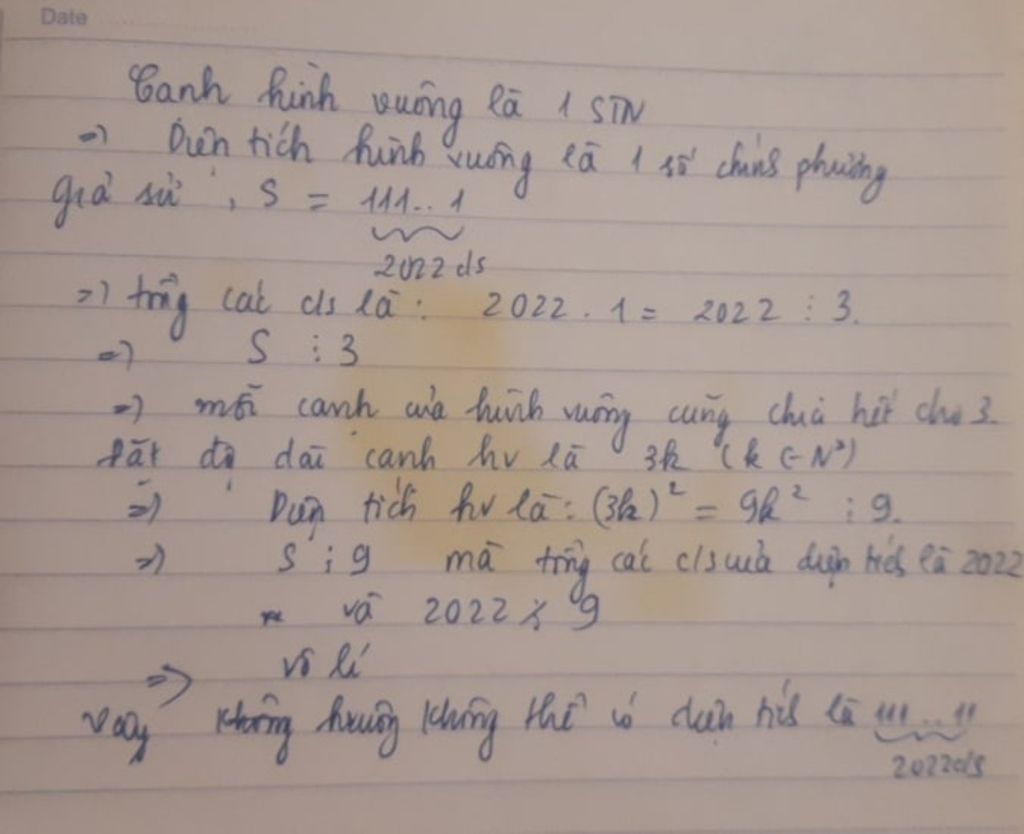 Date
Canh hình vuông là 1 STN
=> Diện tích hình vuông là 1 số chính phương
giả sử, S = 111..1
2022 c/s
=> tổng các c/s là: 2022 . 1 = 2022 ⋮ 3.
=> S ⋮ 3
=> mỗi cạnh của hình vuông cũng chia hết cho 3.
Đặt độ dài cạnh hv là 3k (k ∈ N*)
=> Diện tích hv là: (3k)² = 9k² ⋮ 9.
=> S ⋮ 9 mà tổng các c/s của diện tích là 2022
và 2022 ⋮̸ 9
=> vô lí
vậy không hvuông không thể có diện tích là 111..11
2022 c/s